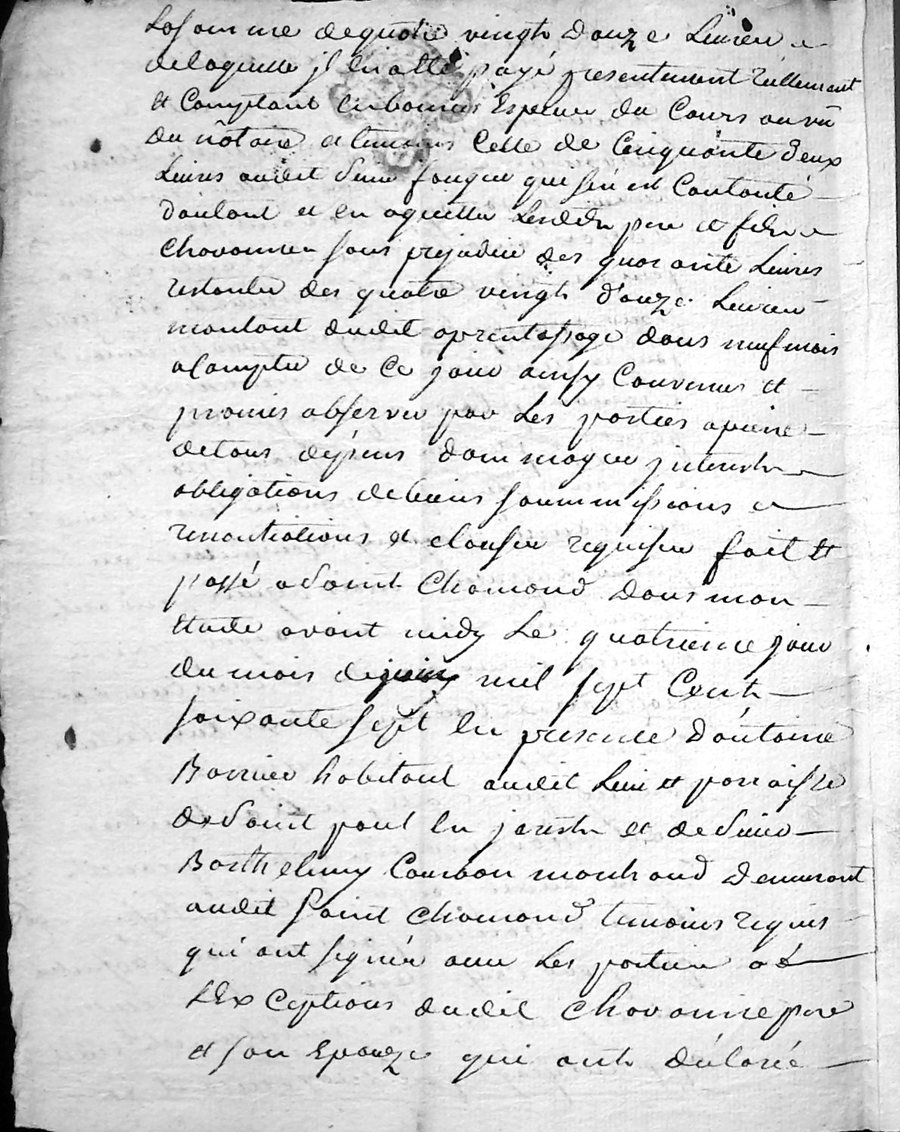 La somme de quatre vingt douze Livres
de laquelle jl en a été payé presentement réellement
et Comptant en bonnes Espèces du Cours au vû
du nôtaire et temoins Celle de Cinquante deux
Livres audit Sieur fougue qui s'en est Contanté
d'autant et en a quitté Lesdits pere et fils
Chavanne sans prejudice des quarante Livres
restantes des quatre vingt d'ouze Livres
montant dudit aprentissage dans neuf mois
a Compter de Ce jour ainsy Convenus et
promis observer par Les parties a peine
de tous dépens dommages jnterests
obligations de biens soummissions
renontiations et clauses requises fait et
passé a Saint Chamond dans mon
Etude avant midy Le quatrieme jour
du mois de juin mil sept Cents
soixante sept En presence d'antoine
Barrier habitant audit Lieu et parroisse
de Saint paul En jarest et de Sieur
Barthelemy Courbon montraud demeurant
audit Saint Chamond temoins requis
qui ont signés avec Les parties a
L'Exceptions dudit Chavanne pere
et son Epouze qui ont déclaré